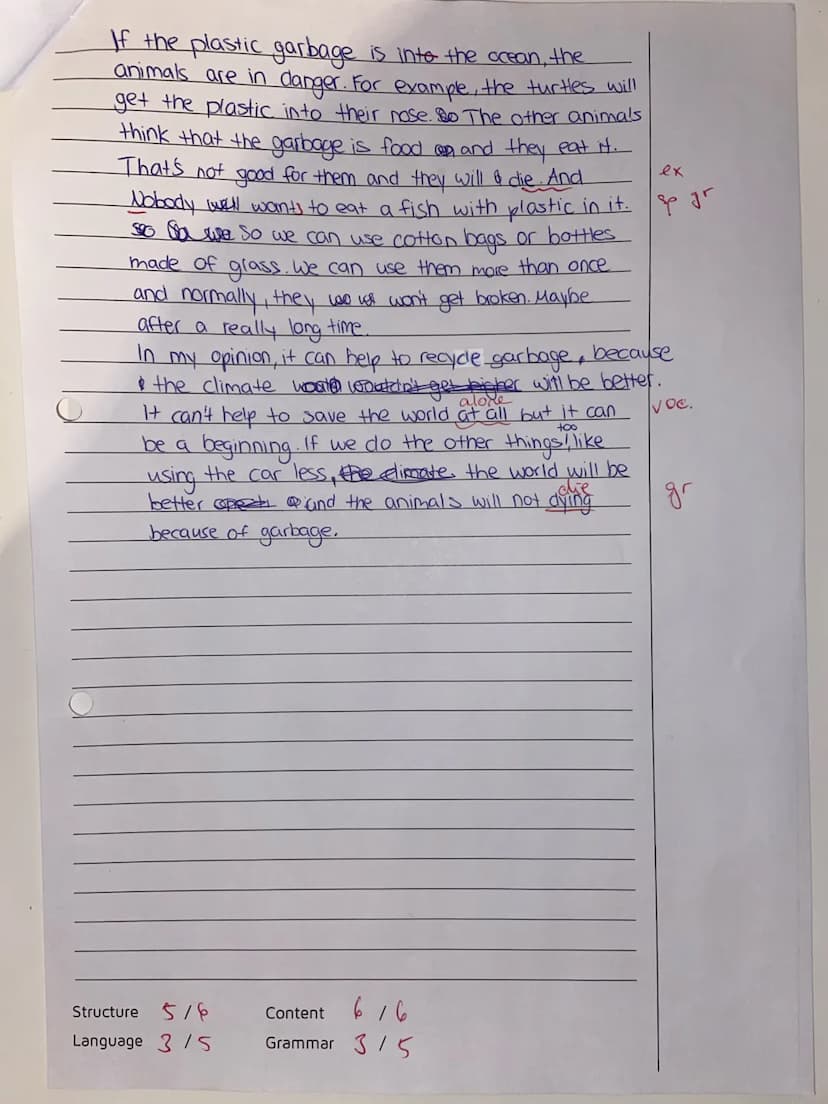 If the plastic garbage is into the ocean, the
animals are in danger. For example, the turtles will
get the plastic into their nose. So The other animals
think that the garbage is food and they eat it.
That's not good for them and they will die. And
ex
Nobody well wants to eat a fish with plastic in it.
sp gr
so So we So we can use cotton bags or bottles
made of glass. We can use them more than once
and normally, they won't get broken. Maybe
after a really long time.
In my opinion, it can help to recycle garbage, because
the climate would wouldn't get higher will be better.
alone
It can't help to save the world at all but it can
voc.
too
be a beginning. If we do the other things, like
using the car less, the climate the world will be
die
better and the animals will not dying
gr
because of garbage.
Structure 5 / 6 Content 6 / 6
Language 3 / 5 Grammar 3 / 5